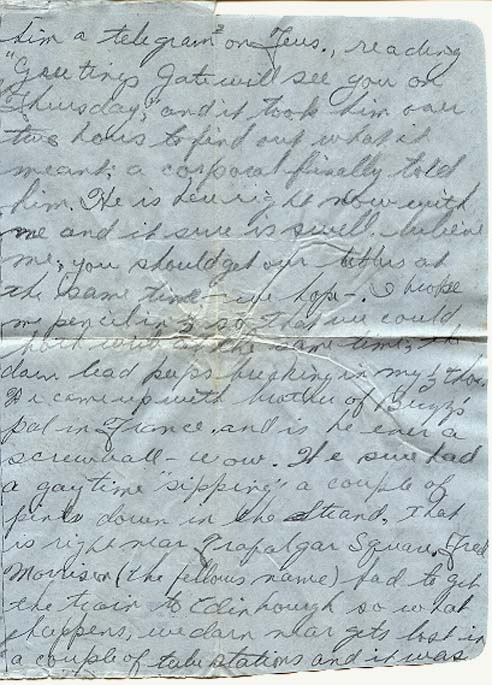 him a telegram on Teus., reading
"Greetings Gate will see you on
Thursday," and it took him over
two hours to find out what it
meant; a corporal finally told
him. He is here right now with
me and it sure is swell. Believe
me, you should get our letters at
the same time - we hope -. I broke
my pencil in ½ so that we could
both write at the same time; the
darn lead keeps breaking in my ½ tho.
He came up with brother of Buzz's
pal in France, and is he ever a
screwball - wow. He sure had
a gay time "sipping" a couple of
pints down in the Strand, that
is right near Trafalgar Square. Fred
Morrison (the fellows name) had to get
the train to Edinbough so what
happens, we darn near gets lost in
a couple of tube stations and it was